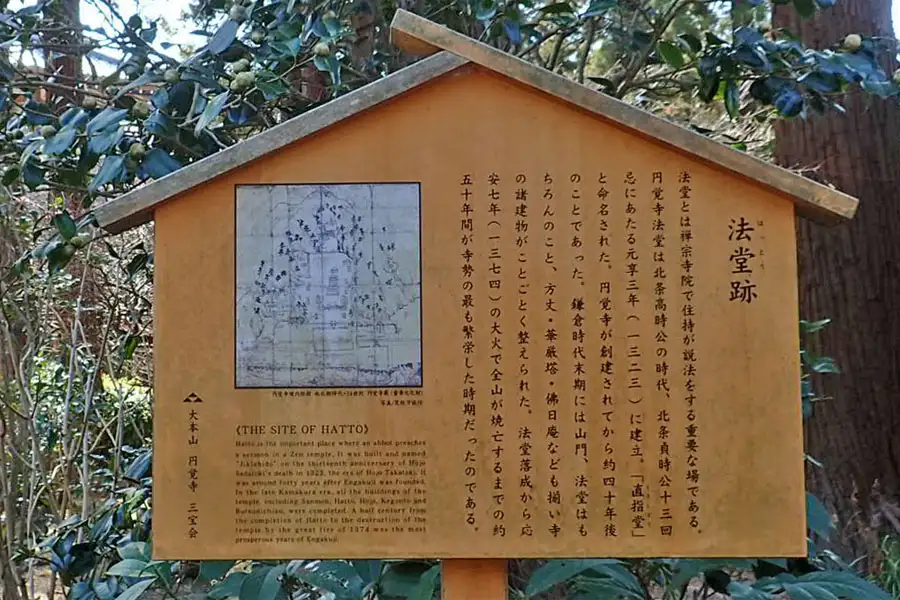 法堂跡
はっとう
法堂とは禅宗寺院で住持が説法をする重要な場である。
円覚寺法堂は北条高時公の時代、北条貞時公十三回
忌にあたる元亨三年(一三二三)に建立。「直指堂」
じきしどう
と命名された。円覚寺が創建されてから約四十年後
のことであった。鎌倉時代末期には山門、法堂はも
ちろんのこと、方丈・華厳塔・佛日庵なども揃い寺
の諸建物がことごとく整えられた。法堂落成から応
安七年(一三七四)の大火で全山が焼亡するまでの約
五十年間が寺勢の最も繁栄した時期だったのである。
《THE SITE OF HATTO》
Hatto is the important place where an abbot preaches
a sermon in a Zen temple. It was built and named
"Jikishido" on the thirteenth anniversary of Hojo
Sadatoki's death in 1323, the era of Hojo Takatoki. It
was around forty years after Engakuji was founded.
In the late Kamakura era, all the buildings of the
temple, including Sanmon, Hatto, Hojo, Kegonto and
Butsunichian, were completed. A half century from
the completion of Hatto to the destruction of the
temple by the great fire of 1374 was the most
prosperous years of Engakuji.
大本山 円覚寺 三宝会